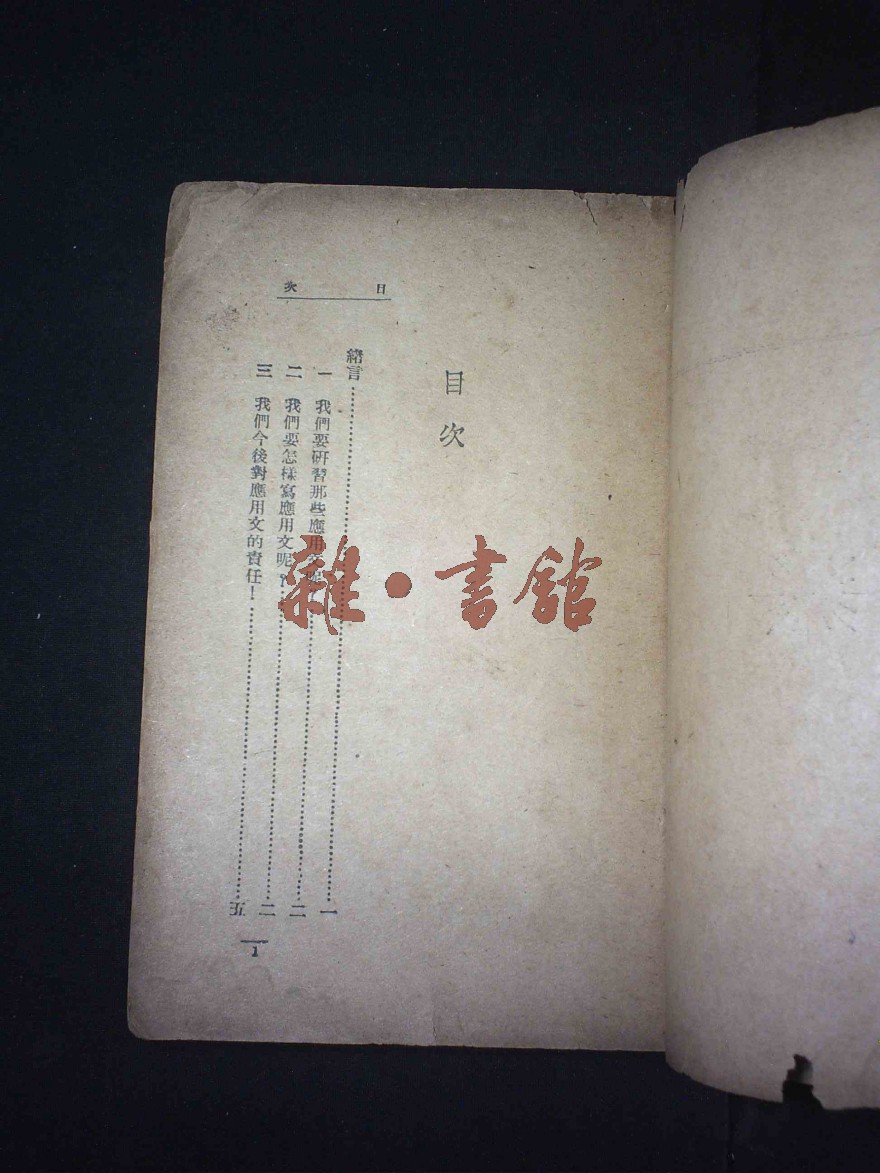 目次
目次
緒言……一
一 我們要研習那些應用文呢……二
二 我們要怎樣寫應用文呢？……二
三 我們今後對應用文的責任！……五
1
雜•書館